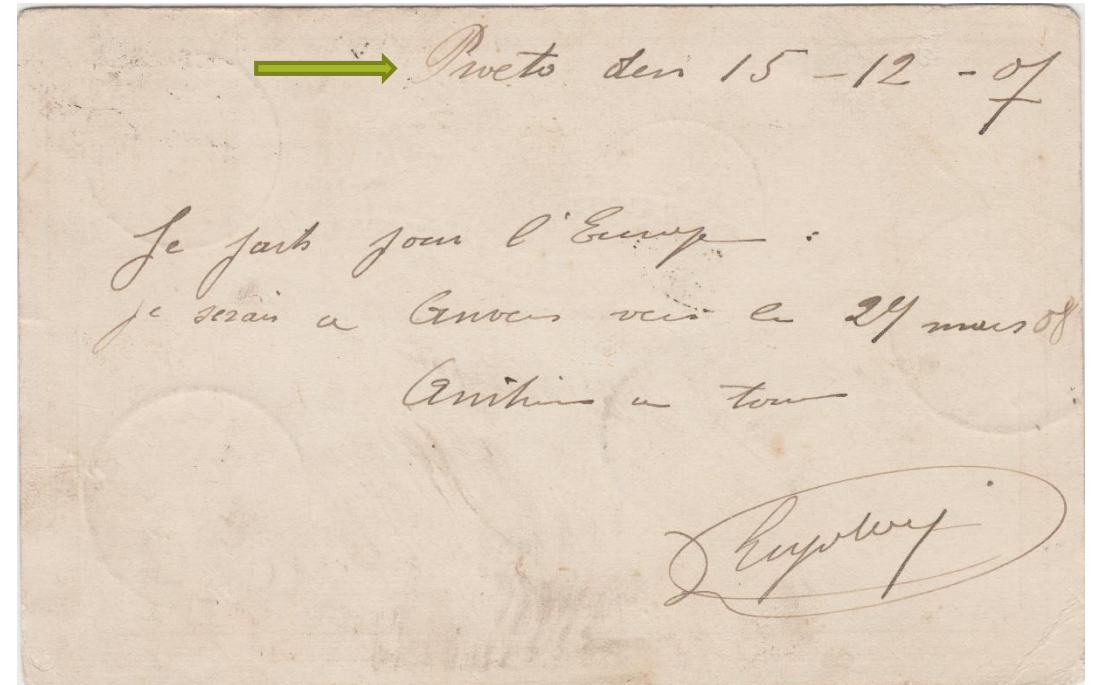 Pweto den 15 - 12 - 07
Je parts pour l'Europe :
je serais a Anvers vers le 27 mars 08
Amitiés a tous